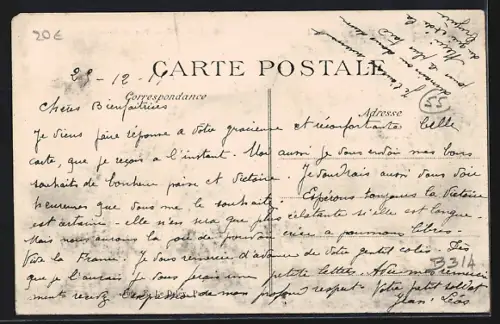 20€
29-12-17
CARTE POSTALE
Correspondance
Adresse
55
Chères Bienfaitrices
Je viens faire réponse a votre gracieuse et réconfortante belle
carte, que je reçois a l'instant. Moi aussi je vous envoie mes bons
souhaits de bonheur paix et victoire. Je voudrais aussi vous voir
heureuses que vous me le souhaité. Espérons toujours la victoire
est certaine - elle n'en sera que plus éclatante si elle est longue -
Mais nous aurons la joie de pouvoir crier a poumons libres -
Vive la France. Je vous remercie d'avance de votre gentil colis. Dès
que je l'aurais je vous ferais une petite lettre. Avec mes remercie
ments recevez l'expression de mon profond respect. Votre petit soldat
Jean
B314